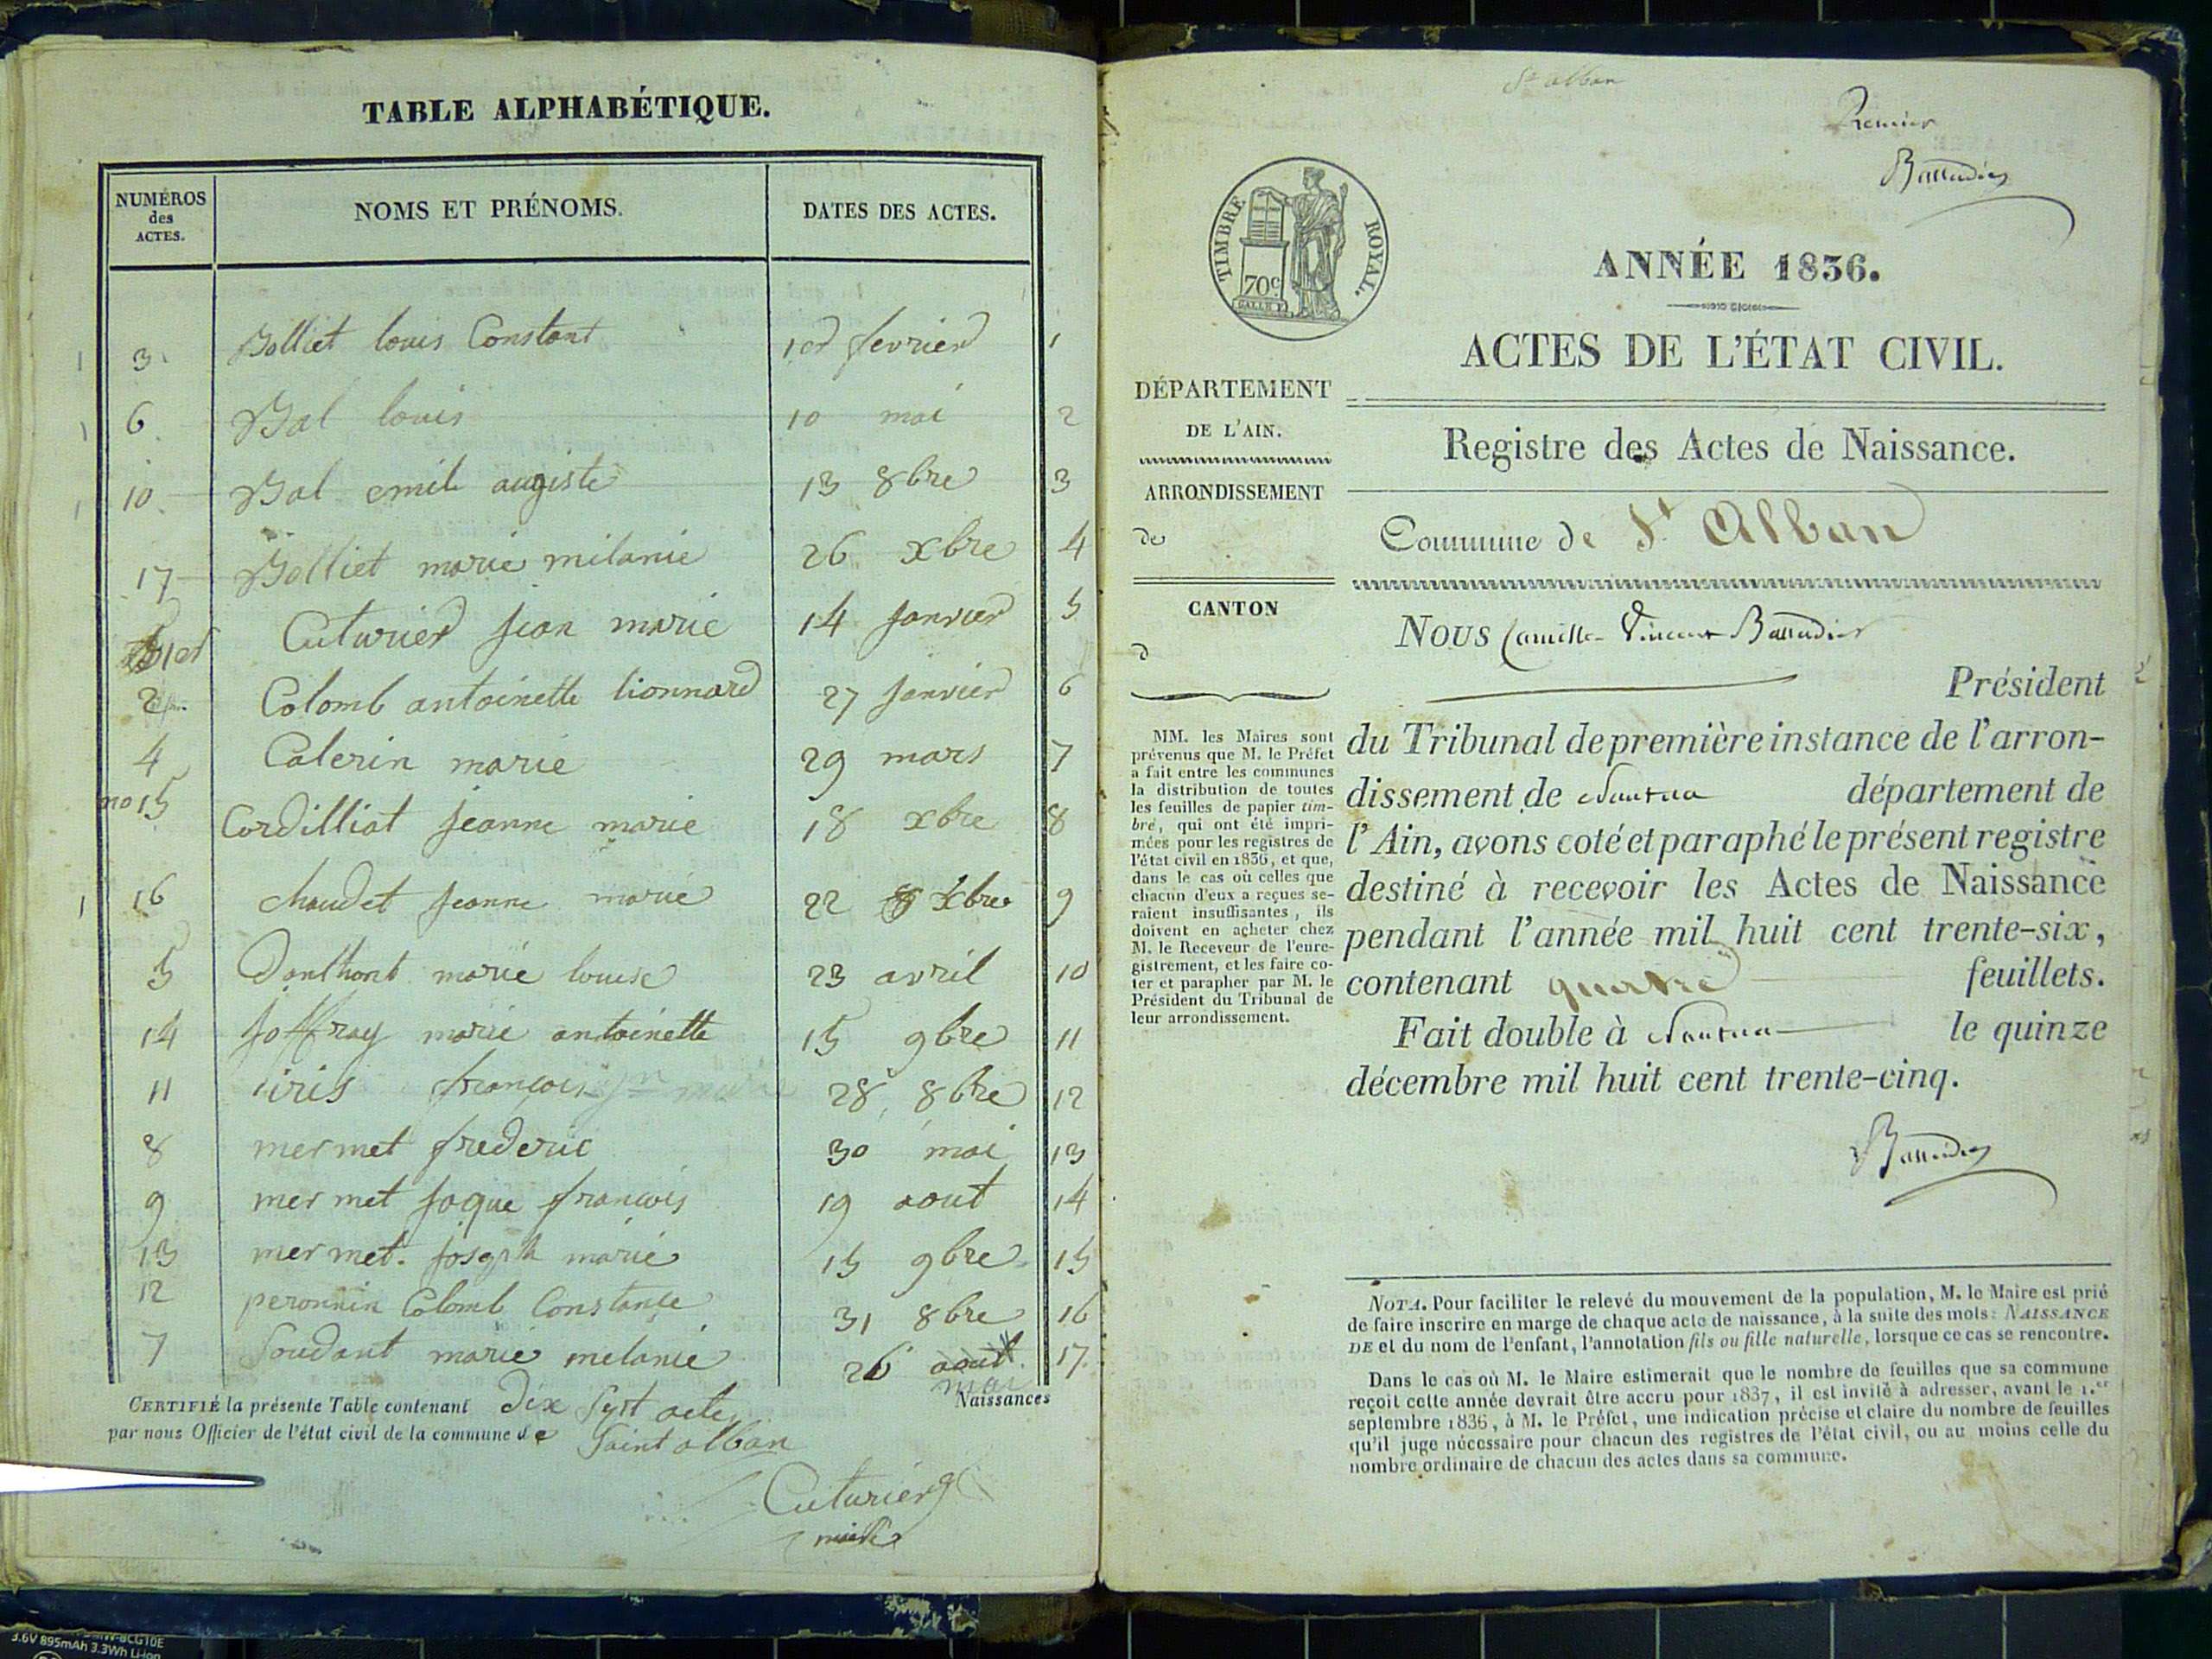 TABLE ALPHABÉTIQUE.
NUMÉROS des ACTES. NOMS ET PRÉNOMS. DATES DES ACTES.
3. Bolliet louis Constant 1er fevrier 1
6 Bal louis 10 mai 2
10 Bal emile augiste 13 8bre 3
17 Bolliet marie milanie 26 xbre 4
1er Cuturier jean marie 14 janvier 5
2 Colomb antoinette lionnard 27 janvier 6
4 Calerin marie 29 mars 7
no 15 Cordilliat jeanne marie 18 xbre 8
16 chaudet jeanne marie 22 xbre 9
5 Donthont marie louise 23 avril 10
14 joffray marie antoinette 15 9bre 11
11 iris francois 28 8bre 12
8 mermet frederic 30 mai 13
9 mermet jaque francois 19 aout 14
13 mermet. joseph marie 15 9bre 15
12 peronnin Colomb Constance 31 8bre 16
7 Soudant marie melanie 26 aout mai 17
Naissances
CERTIFIÉ la présente Table contenant Dix Sept acte
par nous Officier de l'état civil de la commune de Saint alban
Cuturier
maire
St alban
Premier
Battudier
TIMBRE ROYAL.
70c
ANNÉE 1836.
ACTES DE L'ÉTAT CIVIL.
DÉPARTEMENT
DE L'AIN.
ARRONDISSEMENT
de
CANTON
d
MM. les Maires sont
prévenus que M. le Préfet
a fait entre les communes
la distribution de toutes
les feuilles de papier tim-
bré, qui ont été impri-
mées pour les registres de
l'état civil en 1836, et que,
dans le cas où celles que
chacun d'eux a reçues se-
raient insuffisantes, ils
doivent en acheter chez
M. le Receveur de l'enre-
gistrement, et les faire co-
ter et parapher par M. le
Président du Tribunal de
leur arrondissement.
Registre des Actes de Naissance.
Commune de St Alban
NOUS Camille Vincent Battudier
Président
du Tribunal de première instance de l'arron-
dissement de Nantua département de
l'Ain, avons coté et paraphé le présent registre
destiné à recevoir les Actes de Naissance
pendant l'année mil huit cent trente-six,
contenant quatre feuillets.
Fait double à Nantua le quinze
décembre mil huit cent trente-cinq.
Battudier
NOTA. Pour faciliter le relevé du mouvement de la population, M. le Maire est prié
de faire inscrire en marge de chaque acte de naissance, à la suite des mots: NAISSANCE
DE et du nom de l'enfant, l'annotation fils ou fille naturelle, lorsque ce cas se rencontre.
Dans le cas où M. le Maire estimerait que le nombre de feuilles que sa commune
reçoit cette année devrait être accru pour 1837, il est invité à adresser, avant le 1.er
septembre 1836, à M. le Préfet, une indication précise et claire du nombre de feuilles
qu'il juge nécessaire pour chacun des registres de l'état civil, ou au moins celle du
nombre ordinaire de chacun des actes dans sa commune.
3.6V 895mAh 3.3Wh Li-ion